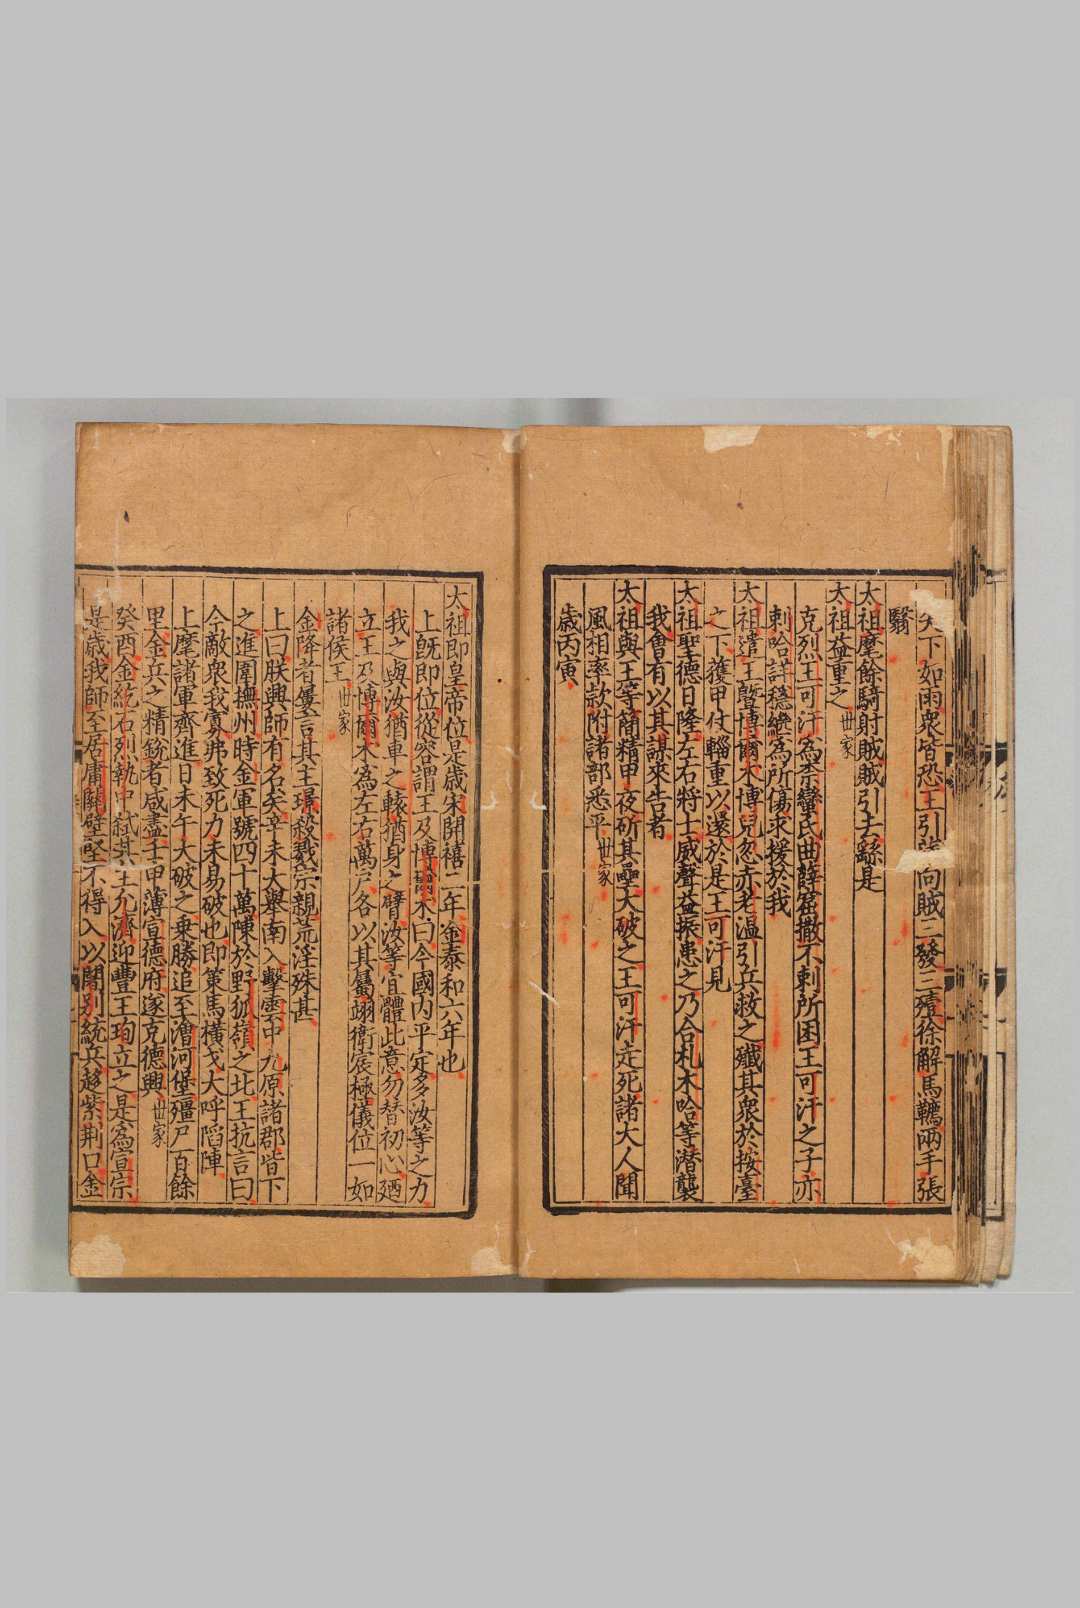 矢下如雨衆皆恐王引弓向賊三發三殪徐解馬韉兩手張
翳
太祖麾餘騎射賊賊引去繇是
太祖益重之世家
克烈王可汗為柰蠻氏曲薛窟撤不剌所困王可汗之子亦
剌哈詳穩繼為所傷求援於我
太祖遣王暨博爾木博兒忽赤老溫引兵救之殲其衆於按臺
之下獲甲仗輜重以還於是王可汗見
太祖聖德日隆左右將士威聲益振患之乃合札木哈等潜襲
我會有以其謀來告者
太祖與王等簡精甲夜斫其壘大破之王可汗走死諸大人聞
風相率款附諸部悉平世家
歲丙寅
太祖即皇帝位是歲宋開禧二年金泰和六年也
上旣即位從容謂王及博木曰今國內平定多汝等之力
我之與汝猶車之轅猶身之臂汝等宜體此意勿替初心廼
立王乃博爾木為左右萬戶各以其屬翊衛宸極儀位一如
諸侯王世家
金降者屢言其主璟殺戮宗親荒淫殊甚
上曰朕興師有名矣辛未大舉南入擊雲中九原諸郡皆下
之進圍撫州時金軍號四十萬陳於野狐嶺之北王抗言曰
今敵衆我寡弗致死力未易破也即策馬橫戈大呼陷陣
上麾諸軍齊進日未午大破之乗勝追至澮河堡殭尸百餘
里金兵之精銳者咸盡壬申薄宣德府遂克德興世家
癸酉金紇石烈執中弑其主允濟迎豐王珣立之是為宣宗
是歲我師至居庸關壁堅不得入以闍別統兵趍紫荆口金